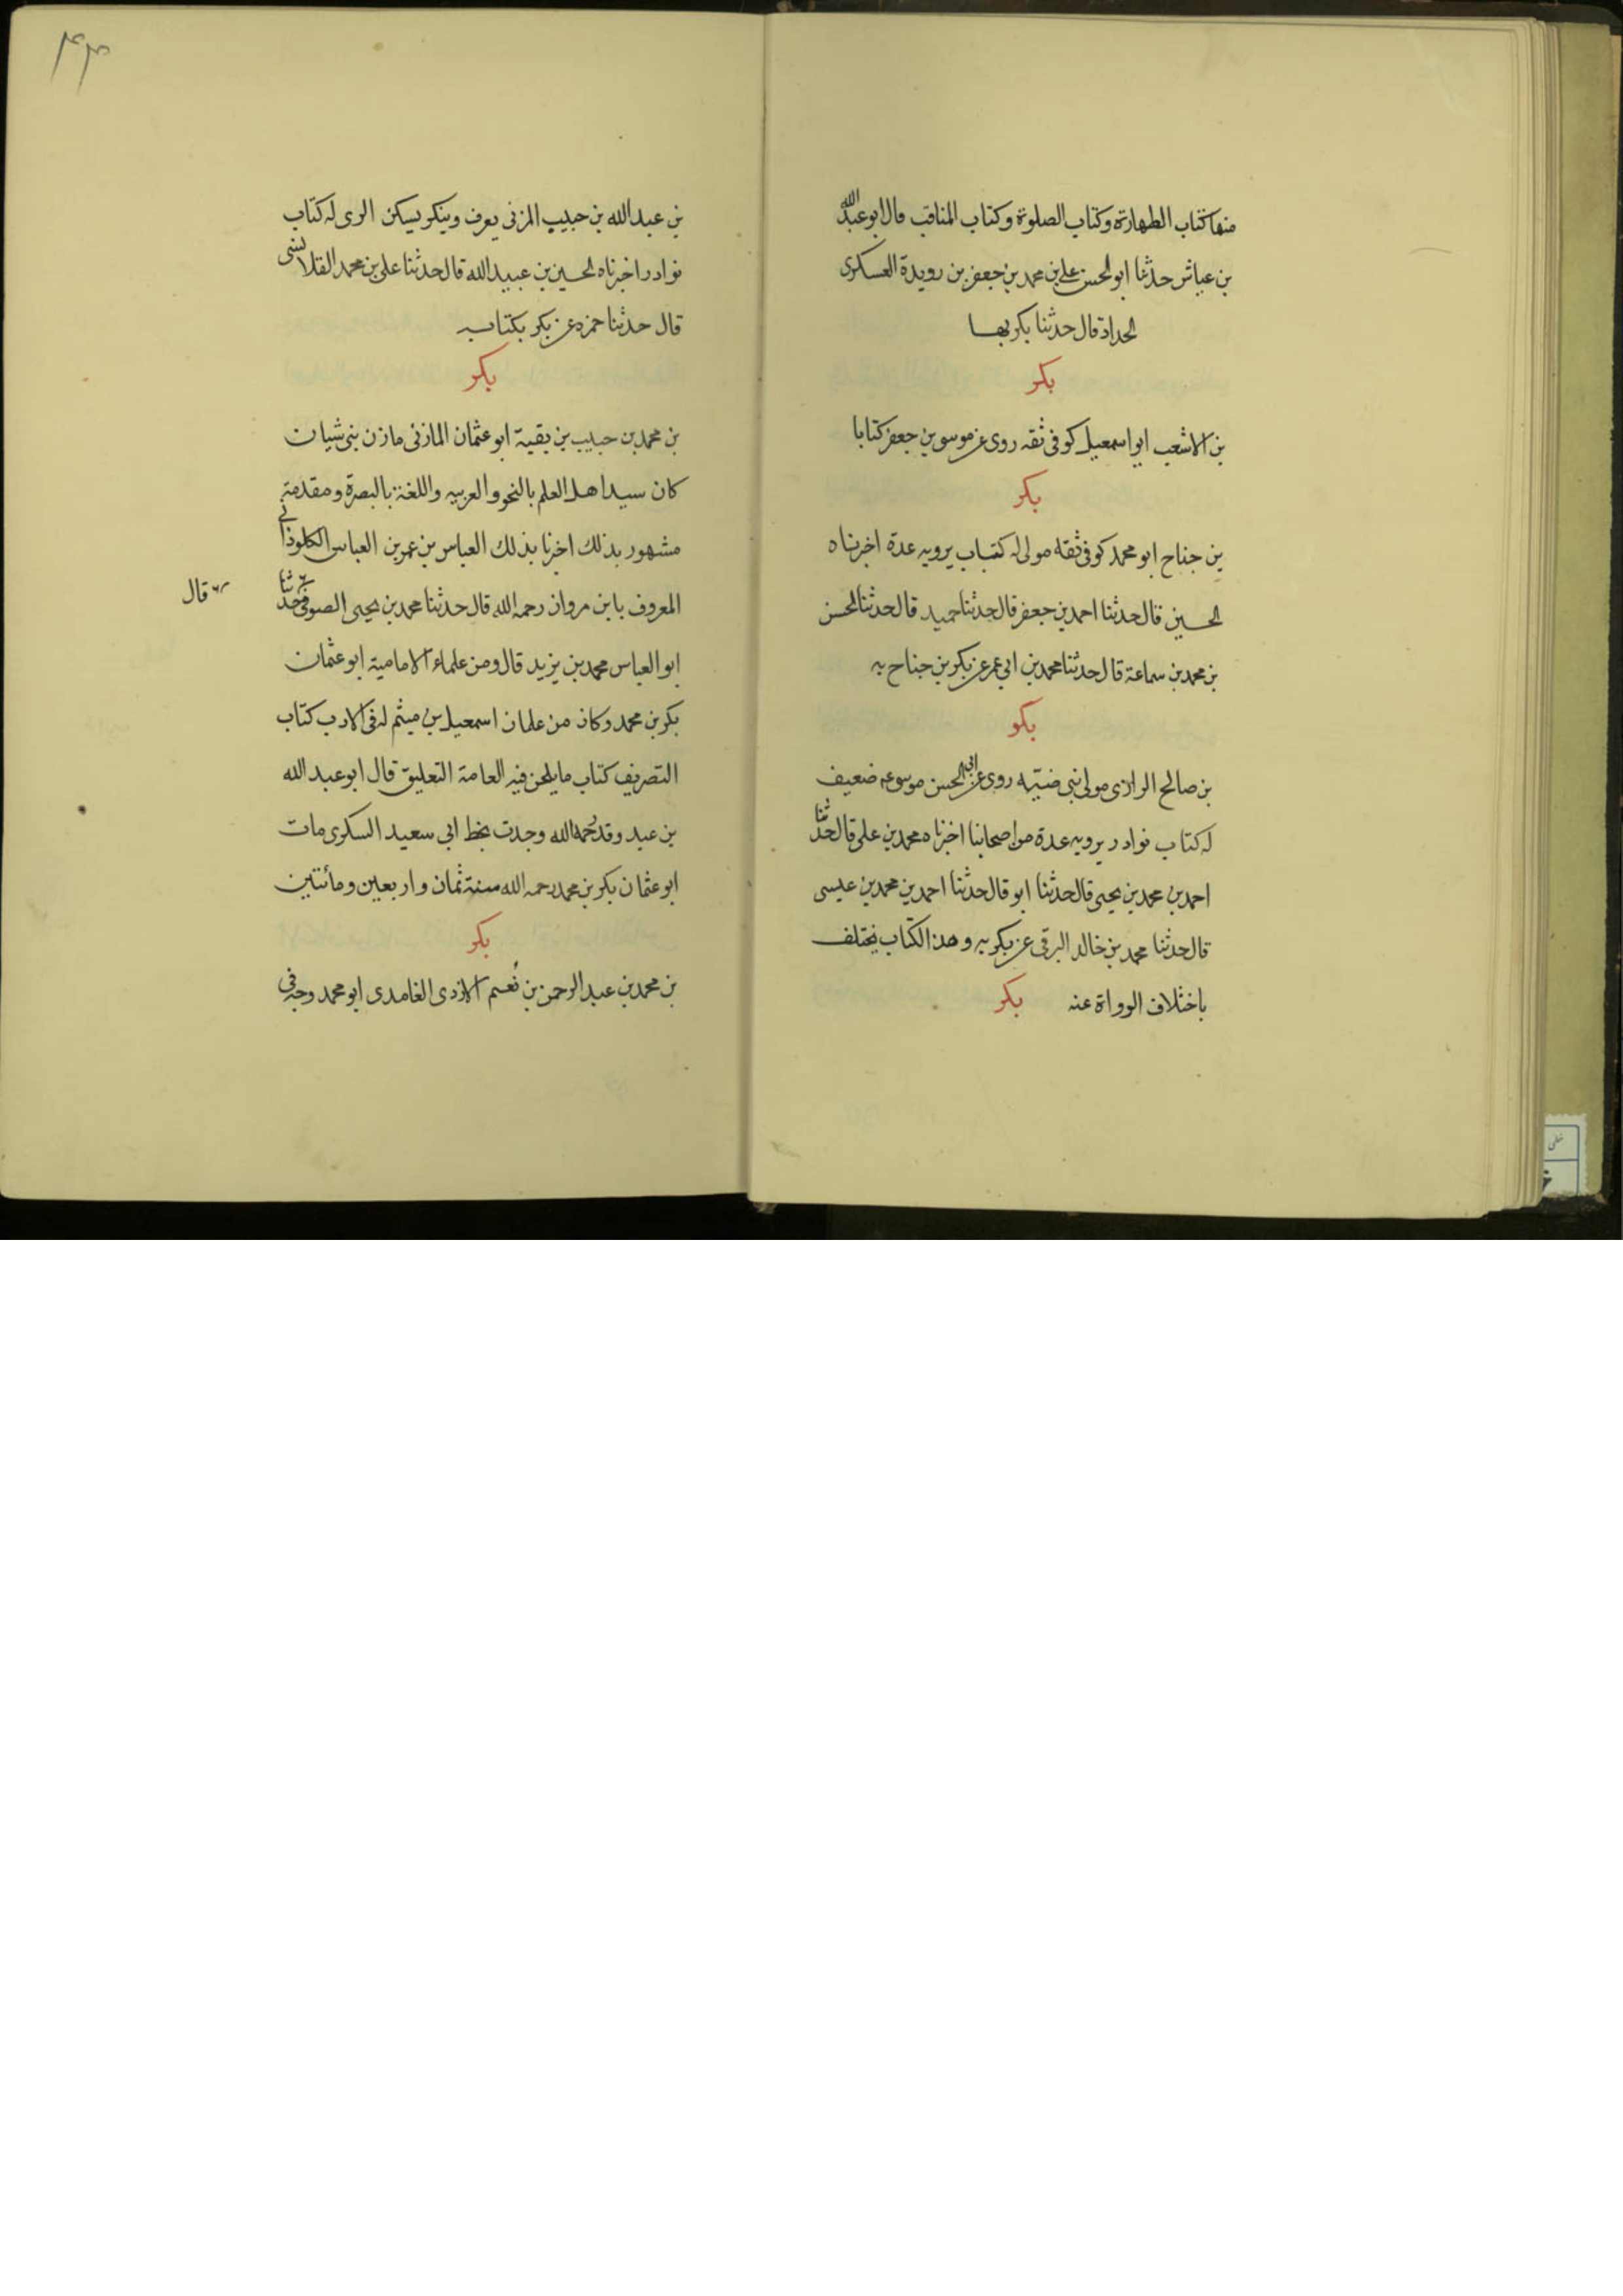 منها كتاب الطهارة وكتاب الصلوة وكتاب المناقب قال ابو عبد الله
بن عياش حدثنا ابو الحسن علي بن محمد بن جعفر بن رويدة العسكرى
الحداد قال حدثنا بكر بها
بكر
بن الاشعب ابو اسمعيل كوفى ثقه روى عن موسى بن جعفر كتابا
بكر
بن جناح ابو محمد كوفى ثقه مولى له كتاب يرويه عدة اخبرناه
الحسين قال حدثنا احمد بن جعفر قال حدثنا حميد قال حدثنا الحسن
بن محمد بن سماعة قال حدثنا محمد بن ابى عمر عن بكر بن جناح به
بكر
بن صالح الرازى مولى بنى ضبة روى عن ابى الحسن موسى ضعيف
له كتاب نوادر يرويه عدة من اصحابنا اخبرناه محمد بن على قال حدثنا
احمد بن محمد بن يحيى قال حدثنا ابو قال حدثنا احمد بن محمد بن عيسى
قال حدثنا محمد بن خالد البرقى عن بكر به وهذا الكتاب يختلف
باختلاف الرواة عنه بكر
٤٣
بن عبد الله بن حبيب المزنى يعرف وينكر يسكن الرى له كتاب
نوادر اخبرناه الحسين بن عبيد الله قال حدثنا على بن محمد القلانسى
قال حدثنا حمزه عن بكر بكتابه
بكر
بن محمد بن حبيب بن بقية ابو عثمان المازنى مازن بنى شيبان
كان سيد اهل العلم بالنحو والعربيه واللغة بالبصرة ومقدمته
مشهور بذلك اخبرنا بذلك العباس بن عمر بن العباس الكلوذانى
المعروف بابن مروان رحمه الله قال حدثنا محمد بن يحيى الصوفى حدثنا
قال
ابو العباس محمد بن يزيد قال ومن علماء الامامية ابو عثمان
بكر بن محمد وكان من غلمان اسمعيل بن ميثم له فى الادب كتاب
التصريف كتاب ما يلحن فيه العامة التعليق قال ابو عبد الله
بن عبدوقد رحمه الله وجدت بخط ابى سعيد السكرى مات
ابو عثمان بكر بن محمد رحمه الله سنة ثمان واربعين ومائتين
بكر
بن محمد بن عبد الرحمن بن نعيم الازدى الغامدى ابو محمد وجه فى